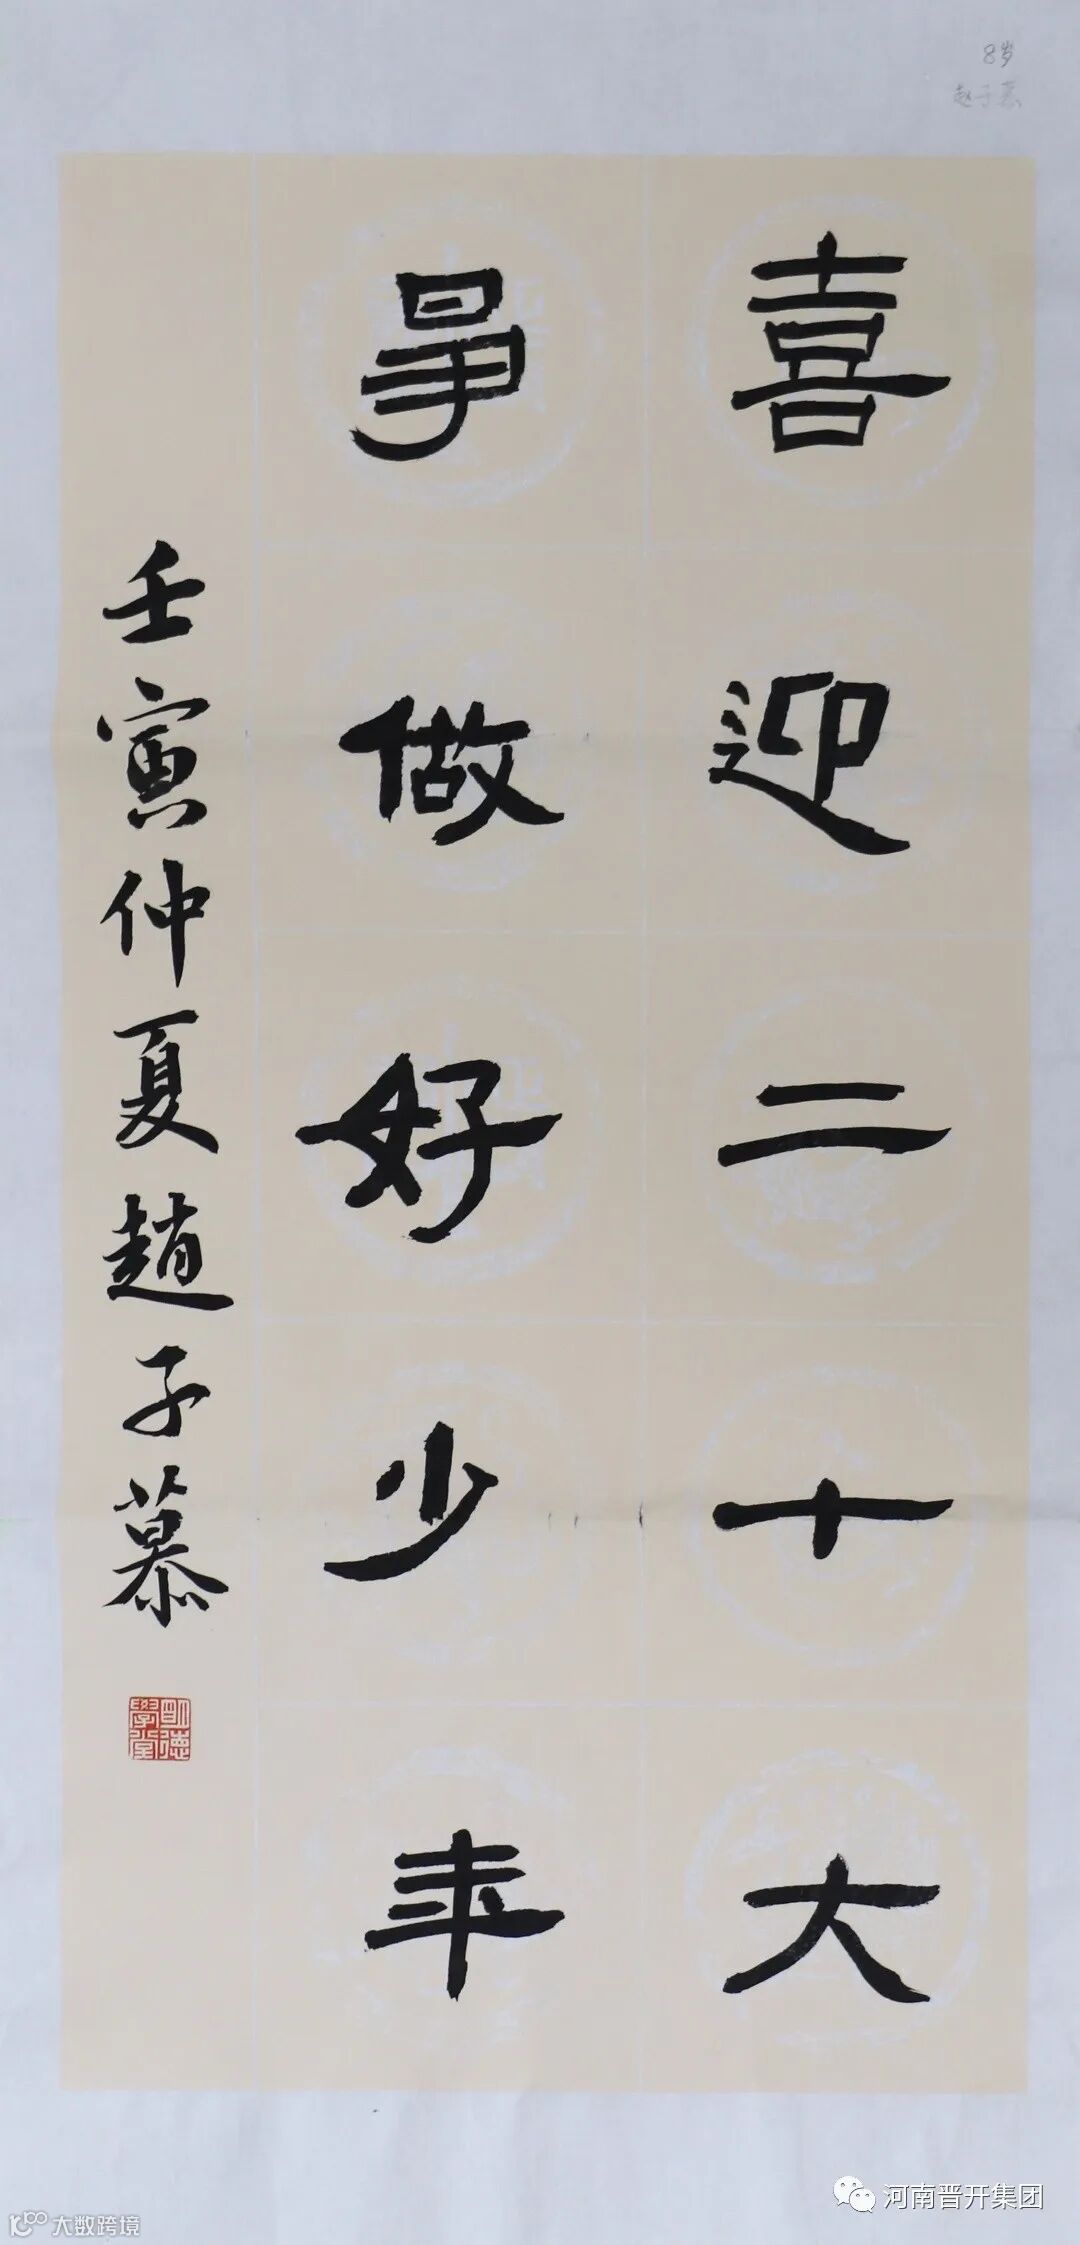 8岁
赵子慕
喜迎二十大
争做好少年
壬寅仲夏趙子慕
明德學堂
河南晋开集团
大数跨境